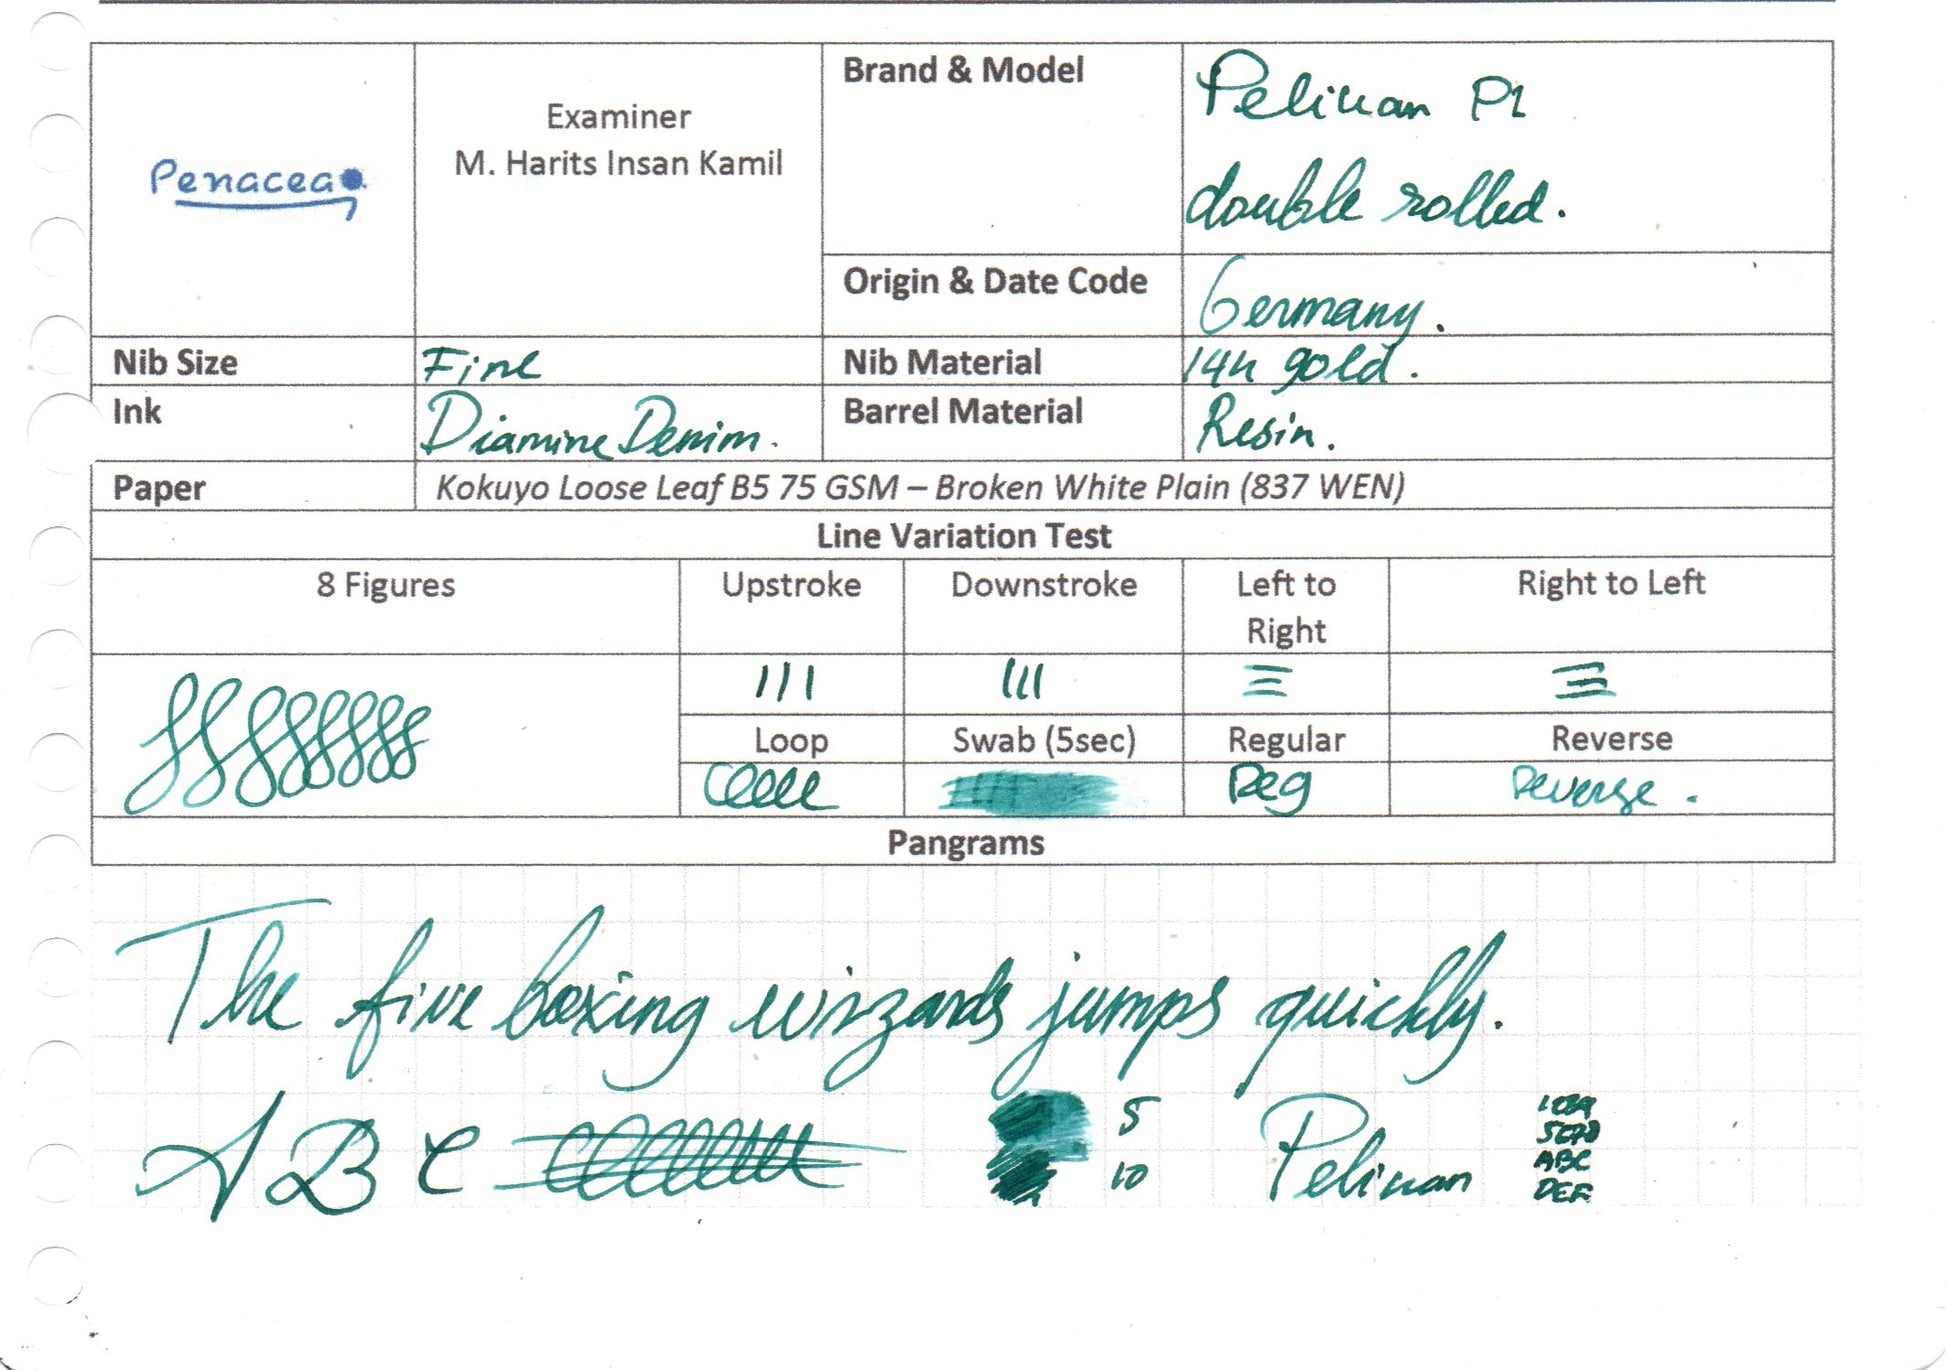 Penacea
Examiner
M. Harits Insan Kamil
Brand & Model
Pelikan P1
double rolled.
Origin & Date Code
Germany.
Nib Size
Fine
Nib Material
14k gold.
Ink
Diamine Denim.
Barrel Material
Resin.
Paper
Kokuyo Loose Leaf B5 75 GSM – Broken White Plain (837 WEN)
Line Variation Test
8 Figures
Upstroke
Downstroke
Left to
Right
Right to Left
Loop
Swab (5sec)
Regular
Reverse
Reg
Reverse.
Pangrams
The five boxing wizards jumps quickly.
A B C
5
10
Pelikan
ABC
DEF